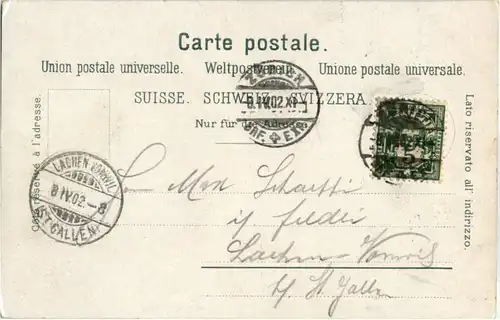 Carte postale.
Union postale universelle. Weltpostverein. Unione postale universale.
SUISSE. SCHWEIZ. SVIZZERA.
Nur für die Adresse.
Côté réservé à l'adresse.
Lato riservato all' indirizzo.
8.IV.02.XI
BRF. EXP.
LACHEN-VONWIL
8 IV 02.-8
(ST. GALLEN)
5
Lachen-Vonwil
b/ St. Gallen